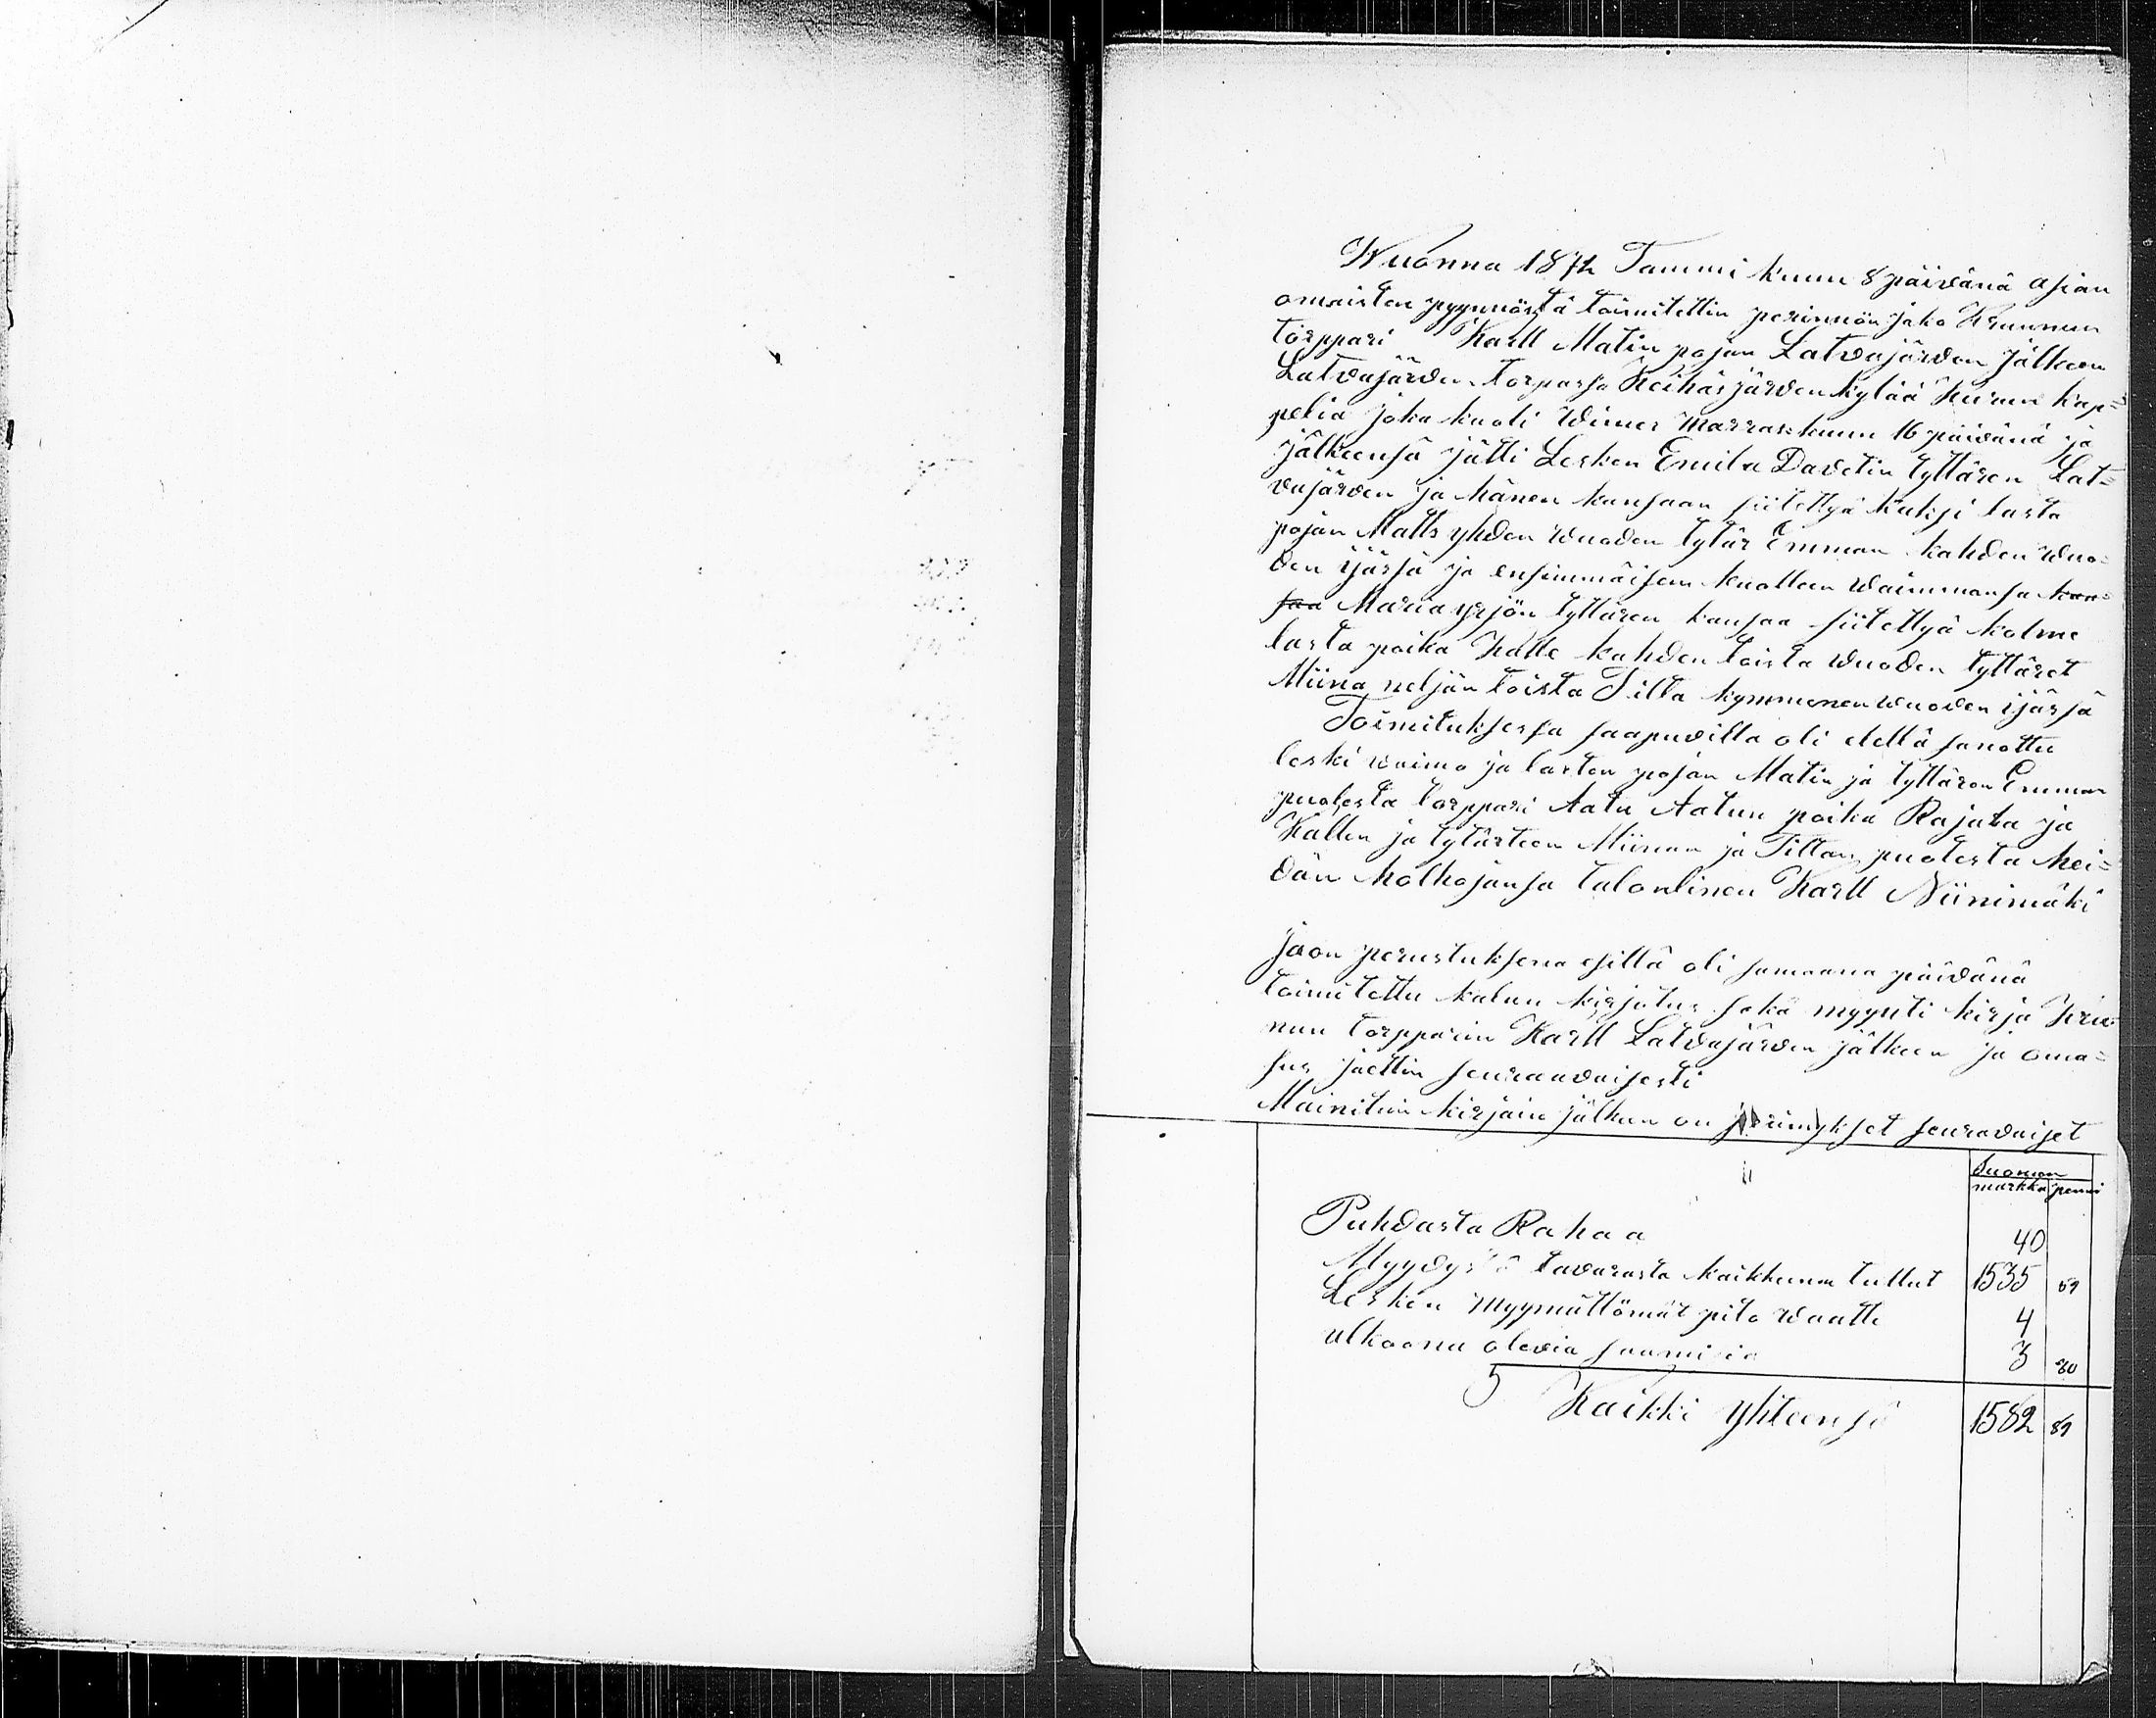 Wuonna 1872 Tammi kuun 8 päivänä asian
omaisten pyynnöstä toimitettin perinnön jako Kruunun
torppari Karll Matin pojan Latvajärven jälkeen
Latvajärven torpassa Keihäsjärven kylää Keurun kap=
pelia joka kuoli Wiimes Marraskuun 16 päivänä ja
jälkeensä jätti Lesken Emila Davetin tyttären Lat=
vajärven ja hänen kansaan siitettyä kaksi lasta
pojan Matts yhden wuoden tytär Emman kahden wuo=
den ijässä ja ensimmäisen kuolleen waimmonsa kan=
saa Maria yrjön tyttären kansaa siitettyä kolme
lasta poika Kalle kahden toista wuoden tyttäret
Miina neljän toista Tilta kymmenen wuoden ijässä
Toimituksessa saapuvilla oli edellä sanottu
leski waimo ja lasten pojan Matin ja tyttären Emman
puolesta torppari Aatu Aatun poika Rajala ja
Kallen ja tytärteen Miinan ja Tiltan puolesta hei=
dän holhojansa talonlinen Karll Niinimäki
jaon perustuksena esillä oli samaana päivänä
toimitettu kalun kirjotus sekä myynti kirja Kru=
nun torpparin Karll Latvajärven jälkeen ja oma=
sus jaettin seuraavaisesti
Mainitun kirjain jälkeen on perimykset seuravaiset
Suomen
markka penni
Puhdasta Rahaa 40
Myydystä tavarasta kaikkunn tullut 1535 59
Lesken myymättömät pito waatte 4
ulkoona olevia saamisia 3 30
Kaikki yhteensä 1582 89